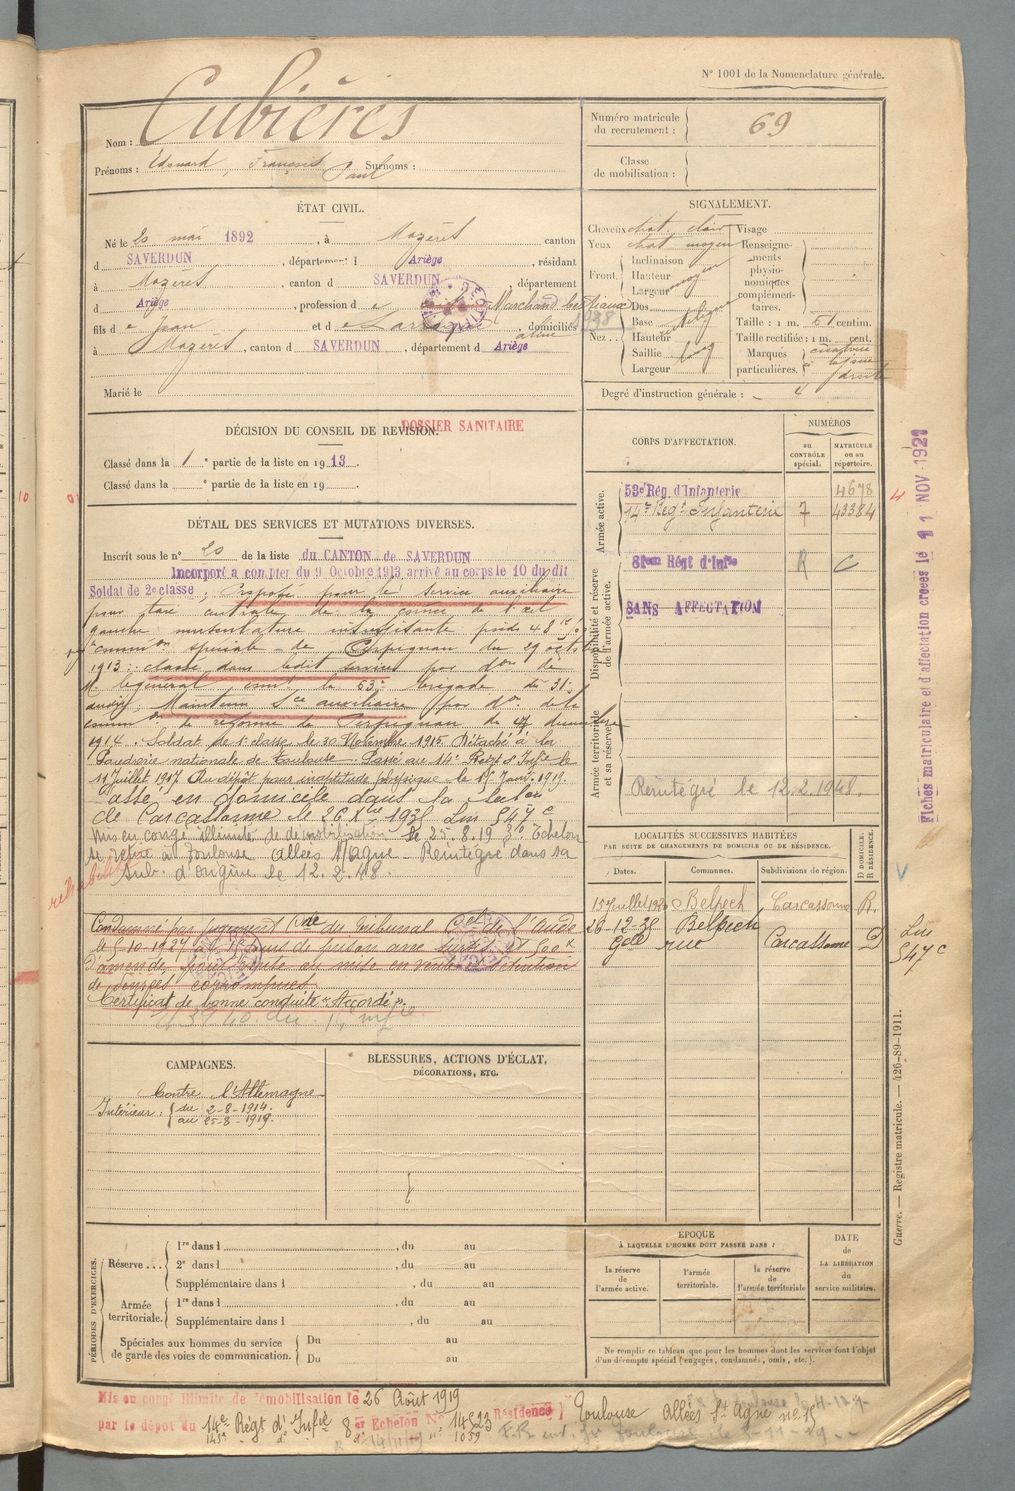 N° 1001 de la Nomenclature générale.
Nom : Cubières
Prénoms : Edouard, François Paul Surnoms :
Numéro matricule du recrutement : 69
Classe de mobilisation :
ÉTAT CIVIL.
Né le 20 mai 1892, à Mazères canton
d SAVERDUN, département d Ariège, résidant
à Mazères, canton d SAVERDUN, département
d Ariège, profession d e Marchand bestiaux
fils d e Jean et d e, domiciliés
à Mazères, canton d SAVERDUN, département d Ariège
Marié le
SIGNALEMENT.
Cheveux chat. clair
Yeux chat. moyen
Front. Inclinaison
Hauteur moyen
Largeur
Nez. Dos
Base
Hauteur
Saillie
Largeur
Visage
Renseignements physionomiques complémentaires.
Taille : 1 m. 51 centim.
Taille rectifiée : 1 m. cent.
Marques particulières.
Degré d'instruction générale : 4
DÉCISION DU CONSEIL DE REVISION.
DOSSIER SANITAIRE
Classé dans la 1e partie de la liste en 1913.
Classé dans la e partie de la liste en 19 .
DÉTAIL DES SERVICES ET MUTATIONS DIVERSES.
Inscrit sous le n° 20 de la liste du CANTON de SAVERDUN
Incorporé a compter du 9 Octobre 1913 arrivé au corps le 10 du dit
Soldat de 2e classe ; Proposé pour le service auxiliaire
pour taie centrale de la cornée de l'œil
gauche musculature insuffisante poids 48
common spéciale de Perpignan du 29 octobre
1913 : classé dans ledit service par don de
Mr le général comt la 63e brigade du 31
Maintenu Sce auxiliaire par don de la
common de réforme de Perpignan du décembre
1914. Soldat de 1e classe le 30 Novembre 1915 Détaché à la
Poudrerie nationale de Toulouse - Passé au 14e Régt d'Infie le
11 Juillet 1917 Au dépôt pour inaptitude physique le 15 Janv. 1919.
Passé en domicile dans la
de Carcassonne le 26 Xbre 1938 Lm 547 c
Mis en congé illimité de démobilisation le 25.8.19 3e Echelon
se retire à Toulouse allées St Agne - Réintégré dans sa
Sub. d'origine le 12.2.48.
réhabilité
Condamné par jugement Cde du Tribunal Cel de l'Aude
le 5-10-1927 à mois de prison avec sursis et 500 x
d'amende, pour vente ou mise en vente
de denrées corrompues
Certificat de bonne conduite « Accordé ».
CORPS D'AFFECTATION.
NUMÉROS
au CONTRÔLE spécial.
MATRICULE ou au répertoire.
Armée active.
53e Rég. d'Infanterie 4678
14e Régt Infanterie 7 43384
Disponibilité et réserve de l'armée active.
81eme Régt d'Infie R C
SANS AFFECTATION
Armée territoriale et sa réserve.
Réintégré le 12.2.1948.
LOCALITÉS SUCCESSIVES HABITÉES
PAR SUITE DE CHANGEMENTS DE DOMICILE OU DE RÉSIDENCE.
Dates. Communes. Subdivisions de région. D DOMICILE. R RÉSIDENCE.
15 Juillet 1920 Belpech Carcassonne R.
26-12-38 Belpech
Gde rue Carcassonne D
Lm 547 c
Fiches matriculaire et d'affectation créées le 11 NOV 1921
CAMPAGNES.
Contre l'Allemagne
Intérieur : du 2-8-1914.
au 25-8-1919.
BLESSURES, ACTIONS D'ÉCLAT,
DÉCORATIONS, ETC.
PÉRIODES D'EXERCICES.
Réserve... 1re dans l , du au
2e dans l , du au
Supplémentaire dans l , du au
Armée territoriale. 1re dans l , du au
Supplémentaire dans l , du au
Spéciales aux hommes du service de garde des voies de communication. Du au
Du au
ÉPOQUE
À LAQUELLE L'HOMME DOIT PASSER DANS :
la réserve de l'armée active.
l'armée territoriale.
la réserve de l'armée territoriale
DATE de LA LIBÉRATION du service militaire.
Ne remplir ce tableau que pour les hommes dont les services font l'objet
d'un décompte spécial (engagés, condamnés, omis, etc.).
Guerre. — Registre matricule. — 426-89-1911.
Mis en congé illimité de démobilisation le 26 Août 1919
par le dépôt du 14e Régt d'Infie 8 er Echelon No 14523 Résidence Toulouse Allées St Agne no 15